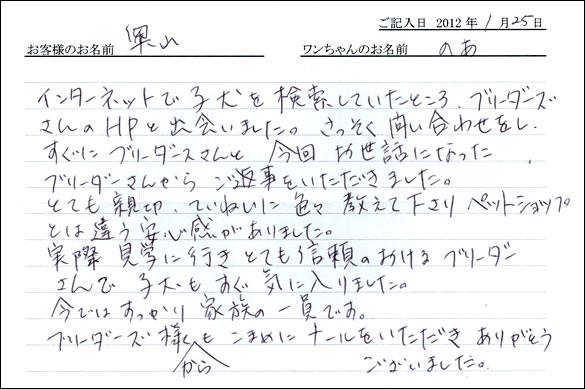 ご記入日 2012年1月25日
お客様のお名前 奥山 ワンちゃんのお名前 のあ
インターネットで子犬を検索していたところ、ブリーダーズ
さんのHPと出会いました。さっそく問い合わせをし、
すぐにブリーダーズさんと今回お世話になった
ブリーダーさんからご返事をいただきました。
とても親切、ていねいに色々教えて下さり ペットショップ
とは違う安心感がありました。
実際見学に行きとても信頼のおけるブリーダー
さんで子犬もすぐ気に入りました。
今ではすっかり家族の一員です。
ブリーダーズ様からもこまめにメールをいただきありがとう
ございました。